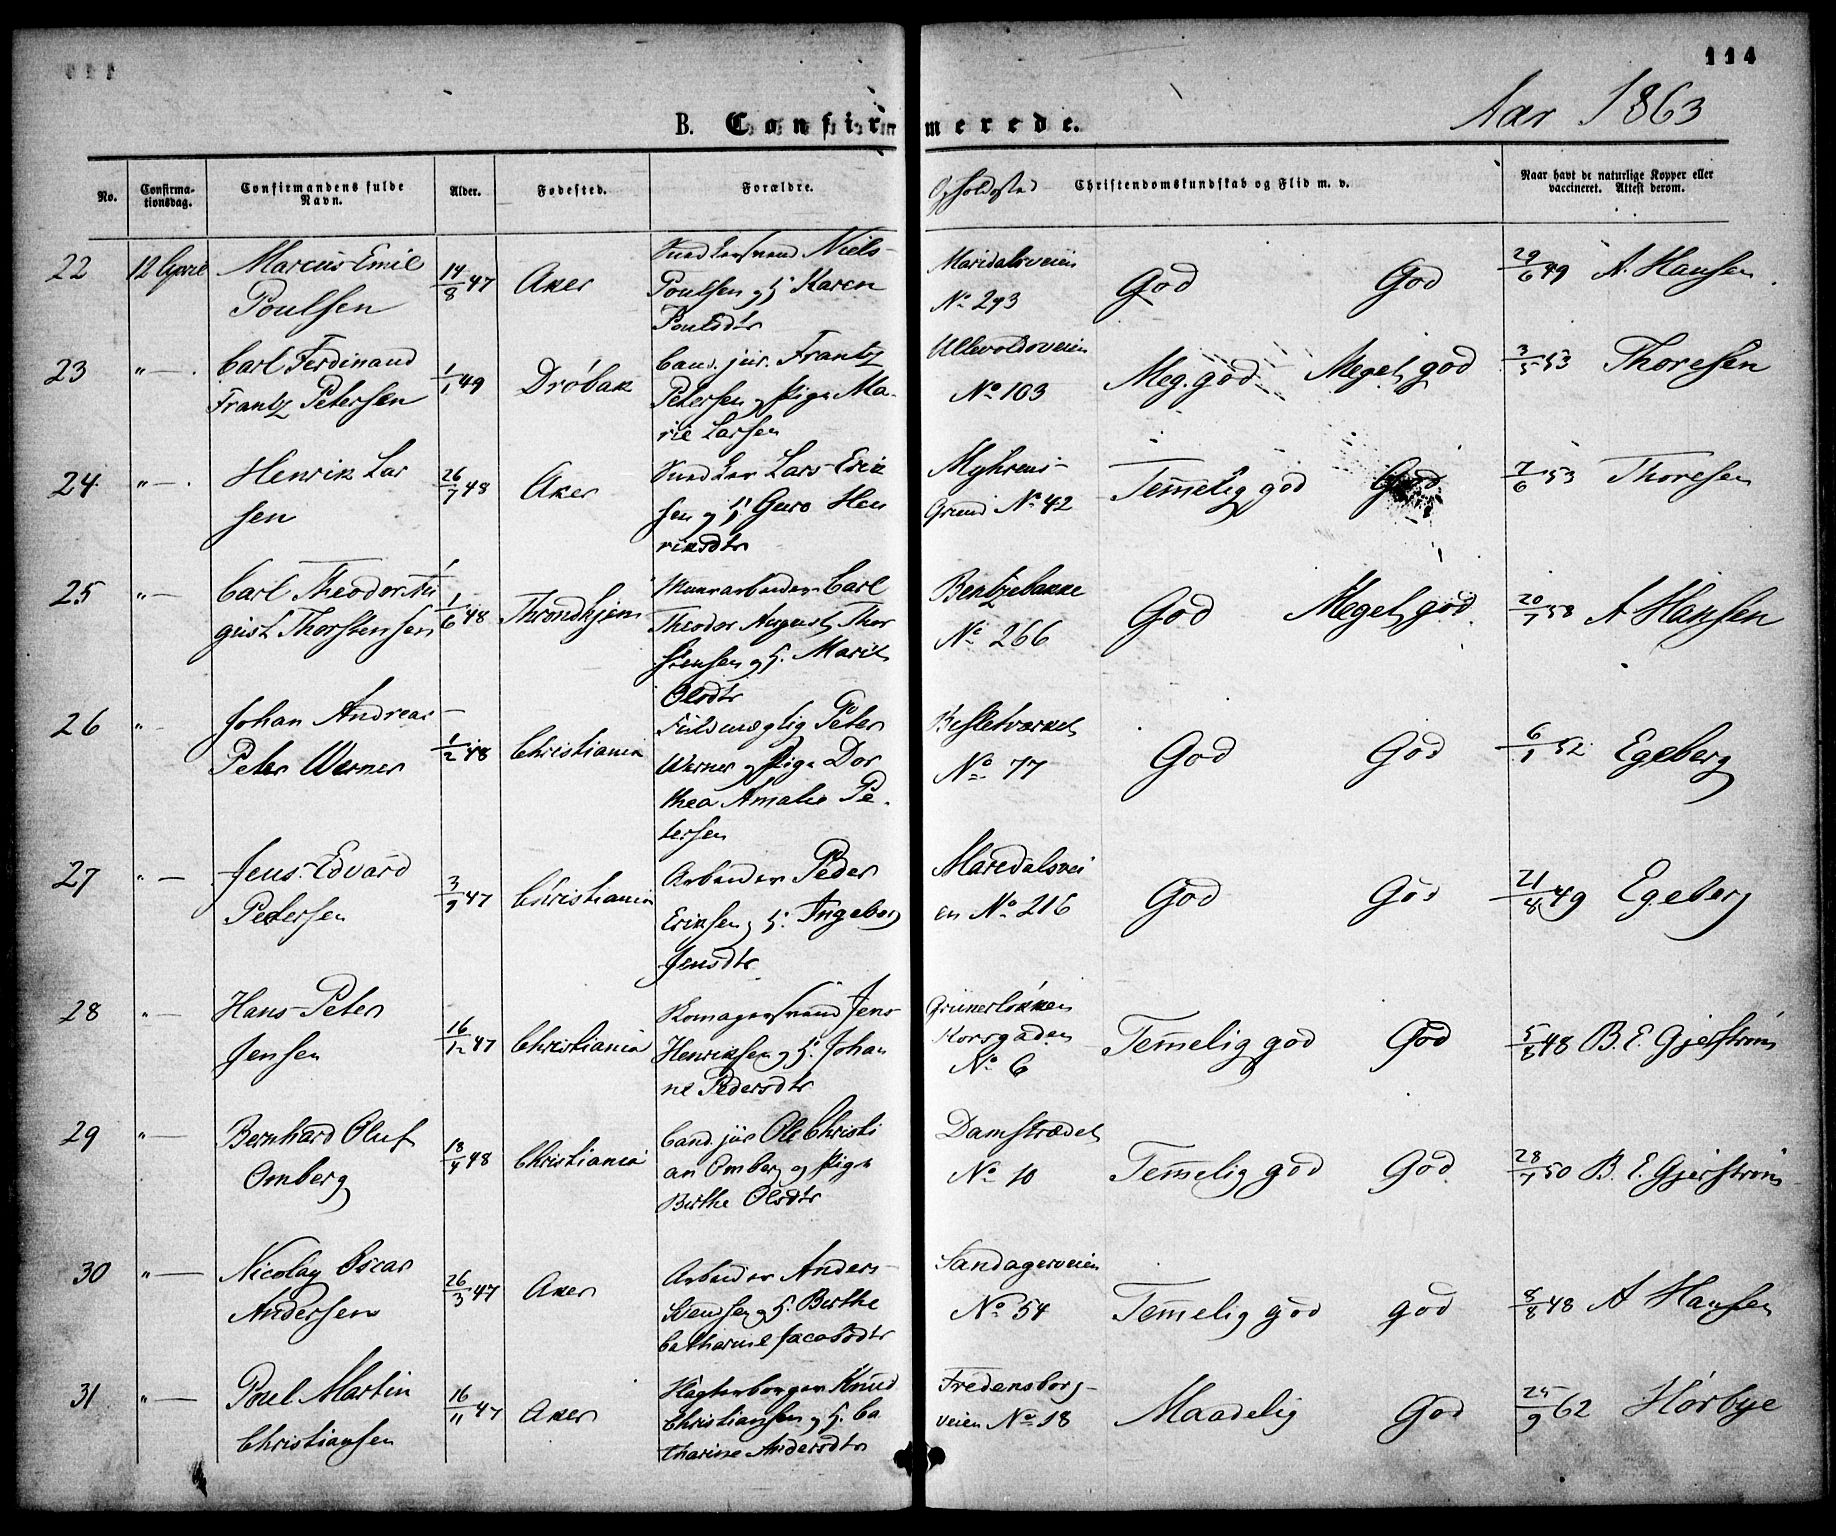 114
B. Confirmerede.
Aar 1863
No.
Confirma-
tionsdag.
Confirmandens fulde
Navn.
Alder.
Fødested.
Forældre.
Opholdssted
Christendomskundskab og Flid m. v.
Naar havt de naturlige Kopper eller
vaccineret. Attest derom.
22 12 April Marcus Emil
Poulsen
14/8 47 Aker
Niels
Poulsen og H. Karen
Poulsdtr
Maridalsveien
No 293
God God 29/6 49 A. Hansen
23 " Carl Ferdinand
Frantz Petersen
1/1 49 Drøbak
Cand. jur. Frantz
Petersen og Pige Ma-
rie Larsen
Ullevoldsveien
No 103
Meg. god Meget god 3/5 53 Thoresen
24 " Henrik Lar
sen
26/7 48 Aker
Lars Erik
sen og H. Guro Hen
riksdtr
Myhrens-
Grund No 42
Temelig god God 7/6 53 Thoresen
25 " Carl Theodor Au
gust Thorstensen
1/6 48 Throndhjem
Murarbeider Carl
Theodor August Thor
stensen og H. Marit
Olsdtr
Bentzebakke
No 266
God Meget god 20/7 58 A Hansen
26 " Johan Andreas
Peter Werner
1/2 48 Christiania
Fuldmægtig Peter
Werner og Pige Dor
thea Amalie Pe-
tersen
No 77
God God 6/1 52 Egeberg
27 " Jens Edvard
Pedersen
3/9 47 Christiania
Arbeider Peder
Eriksen og H. Ingeborg
Jensdtr
Maredalsvei
en No 216
God God 21/8 49 Egeberg
28 " Hans Peter
Jensen
16/12 47 Christiania
Jens
Henriksen og H. Johan
ne Pedersdtr
Grünerløkken
Korsgaden
No 6
Temelig god God 5/8 48 B. E. Gjerstrøm
29 " Bernhard Oluf
Omberg
18/4 48 Christiania
Cand. jur Ole Christi
an Omberg og Pige
Berthe Olsdtr
Damstrædet
No 10
Temelig god God 28/7 50 B. E. Gjerstrøm
30 " Nicolay Oscar
Andersen
26/3 47 Aker
Arbeider Anders
Svendsen og H. Berthe
Catharine Jacobsdtr
Sandagerveien
No 54
Temelig god god 8/8 48 A Hansen
31 " Poul Martin
Christiansen
16/11 47 Aker
Knud
Christiansen og H. Ca
tharine Andersdtr
Fredensborg-
veien No 18
Maadelig God 25/9 62 Hørbye